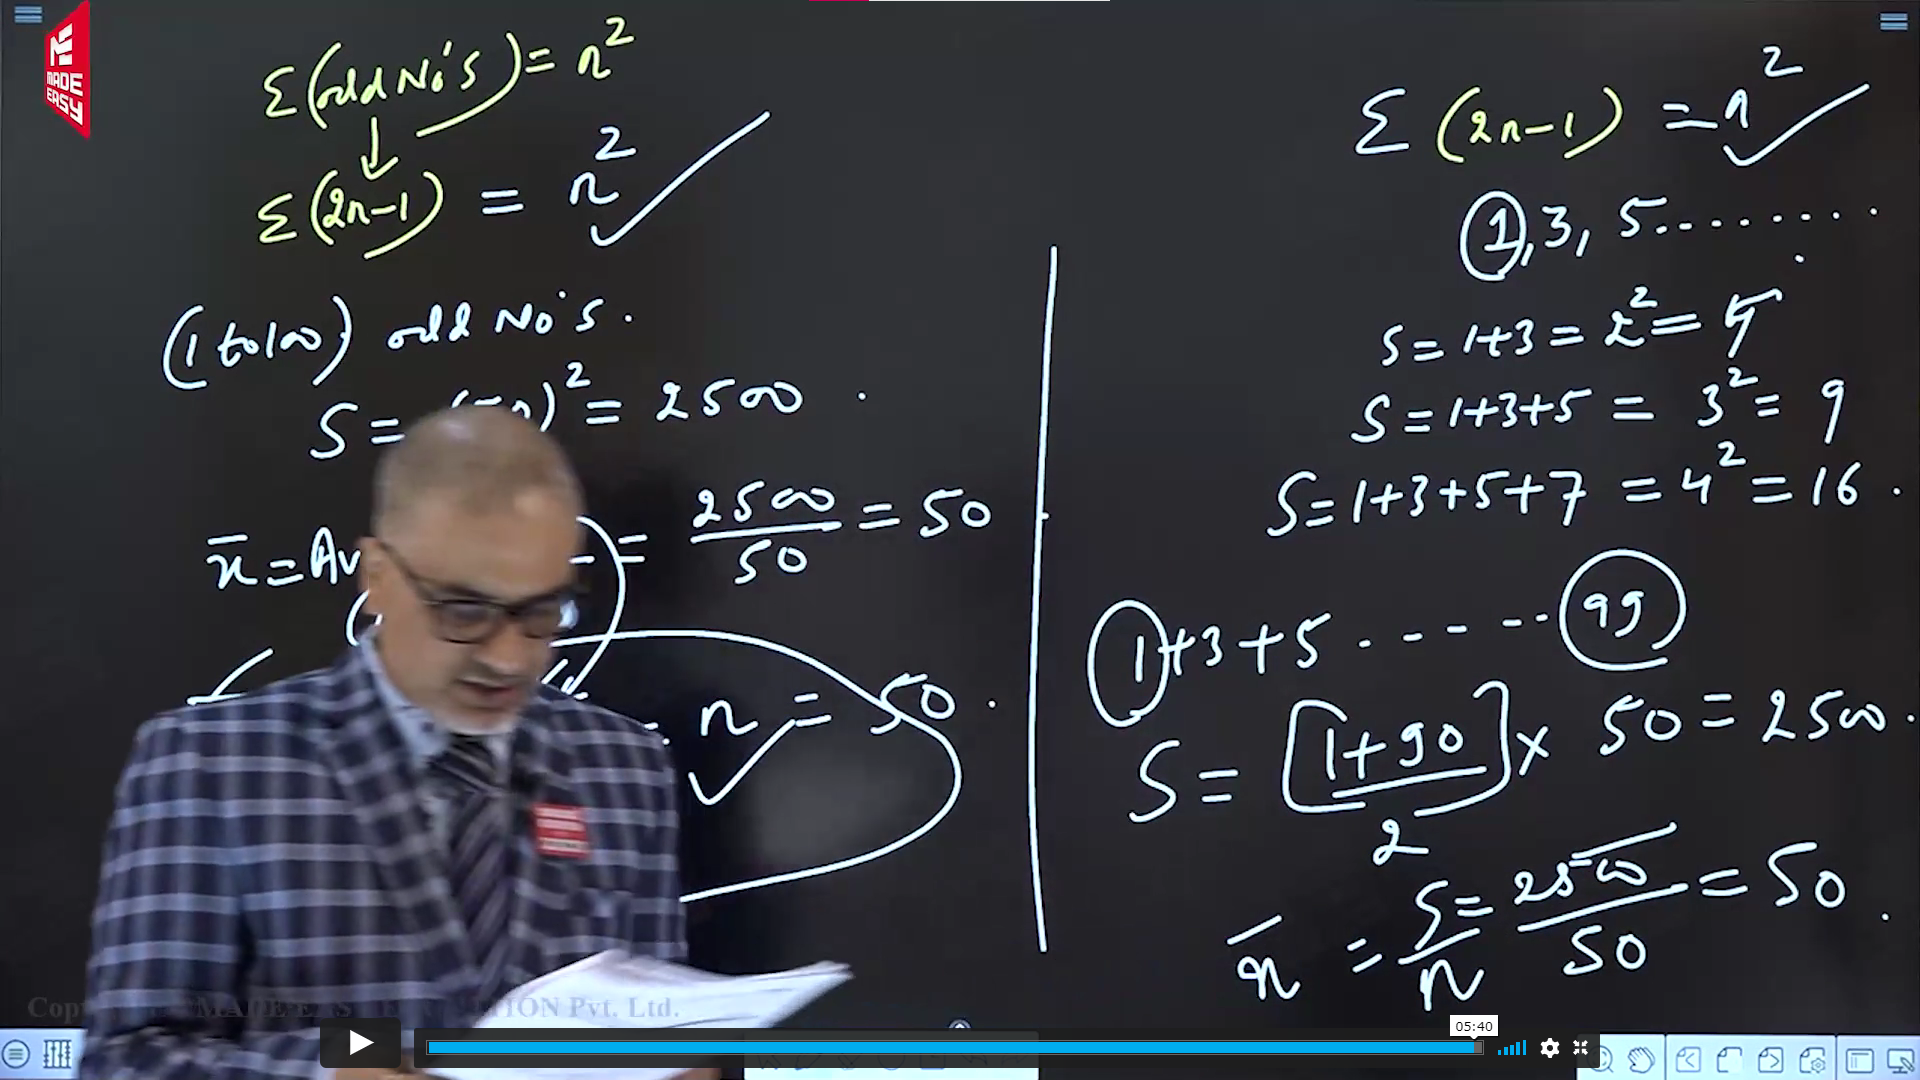 MADE
EASY
Σ(odd No's) = n²
Σ(2n-1) = n²
(1 to 100) odd No's.
S = )² = 2500
x̄ = Av = 2500/50 = 50
n = 50
Σ (2n-1) = n²
1, 3, 5.......
S = 1+3 = 2² = 4
S = 1+3+5 = 3² = 9
S = 1+3+5+7 = 4² = 16
1+3+5 ------ 99
S = [1+90]/2 × 50 = 2500
x̄ = S/n = 2500/50 = 50
MADE EASY Pvt. Ltd.
05:40